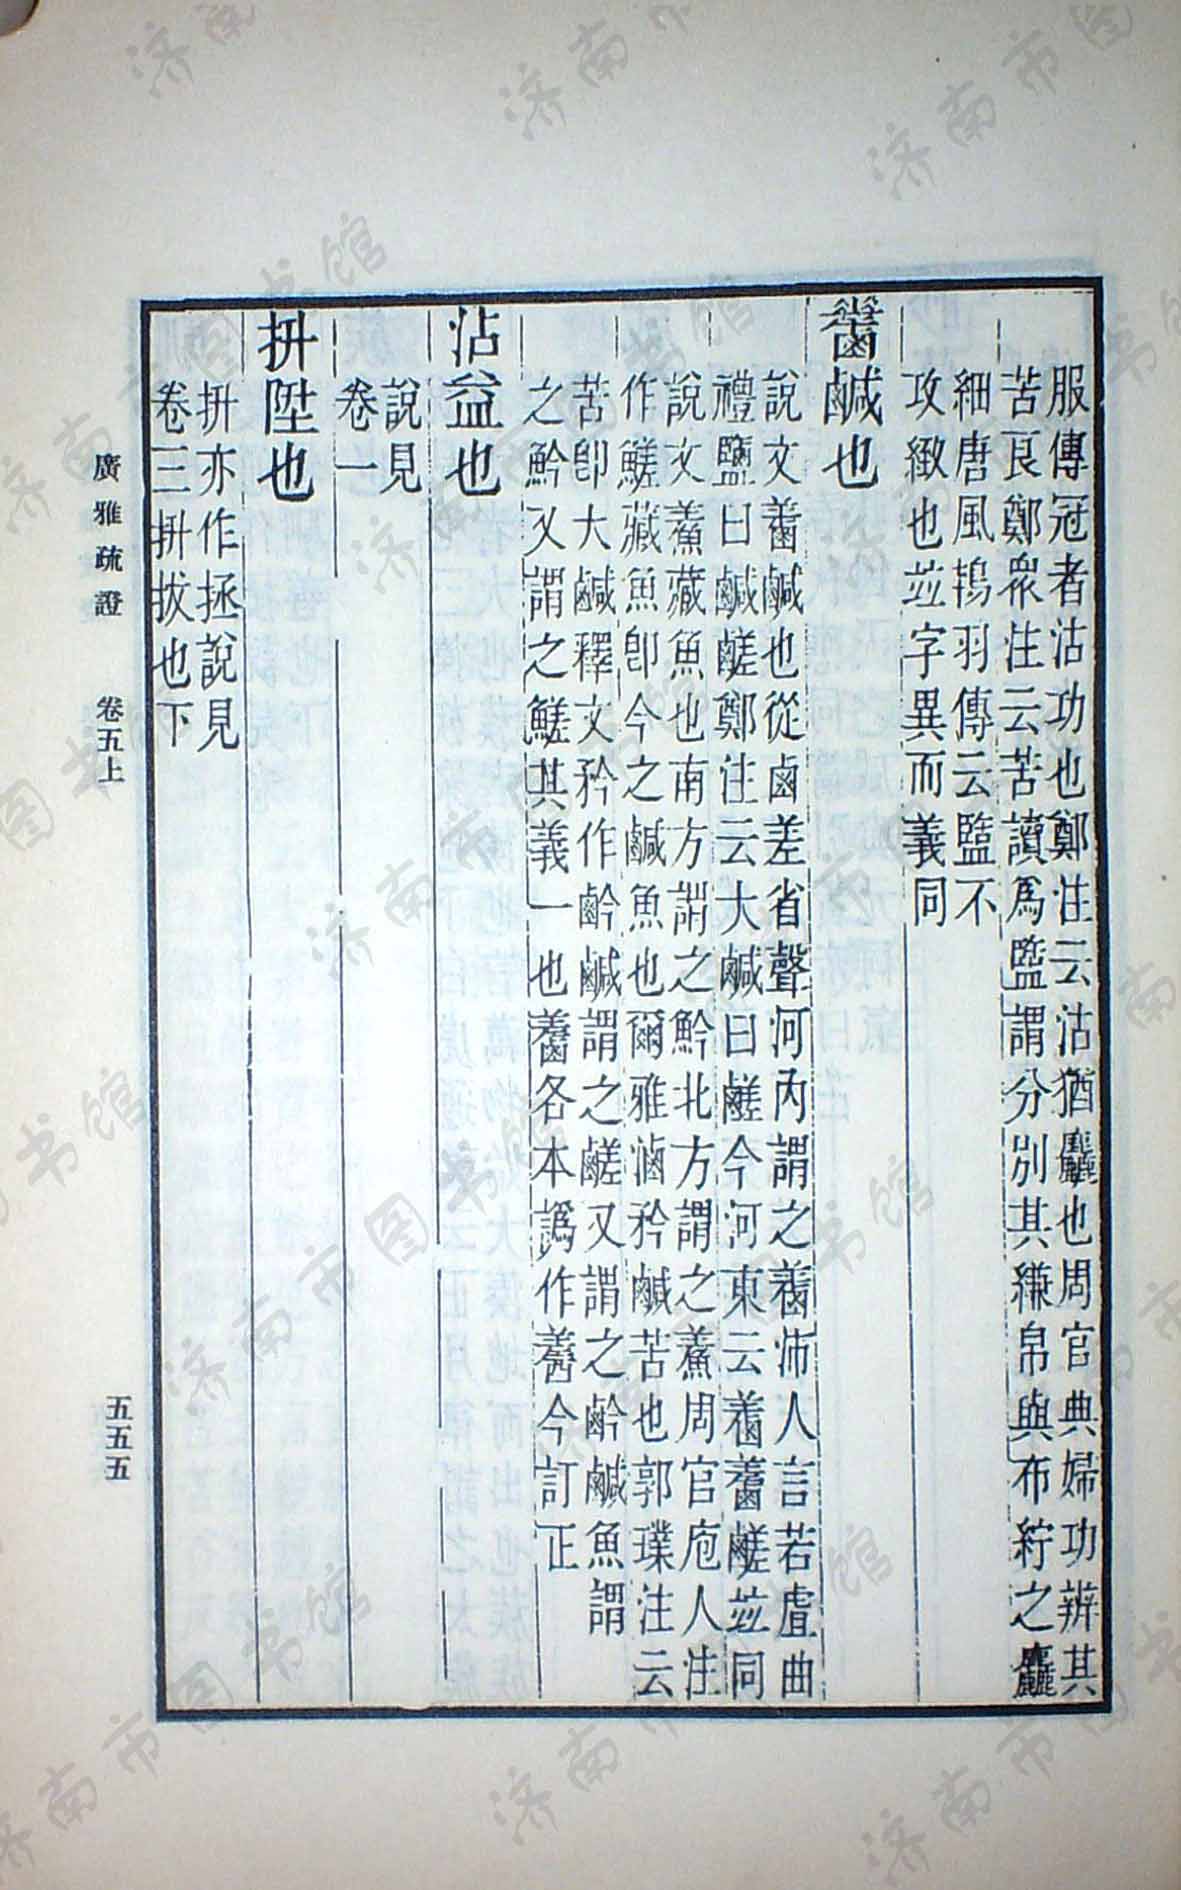 服傳冠者沽功也鄭注云沽猶麤也周官典婦功辨其
苦良鄭眾注云苦讀爲盬謂分別其縑帛與布紵之麤
細唐風鴇羽傳云盬不
攻緻也並字異而義同
䴾鹹也
說文䴾鹹也從鹵差省聲河內謂之䴾沛人言若虘曲
禮鹽曰鹹鹺鄭注云大鹹曰鹺今河東云䴾䴾鹺並同
說文鮺藏魚也南方謂之䰼北方謂之鮺周官庖人注
作䱹藏魚卽今之鹹魚也爾雅滷矜鹹苦也郭璞注云
苦卽大鹹釋文矜作鹹謂之鹺又謂之鹹魚謂
之䰼又謂之䱹其義一也䴾各本譌作今訂正
沾益也
說見
卷一
抍陞也
抍亦作拯說見
卷三抍拔也下
廣雅疏證 卷五上
五五五